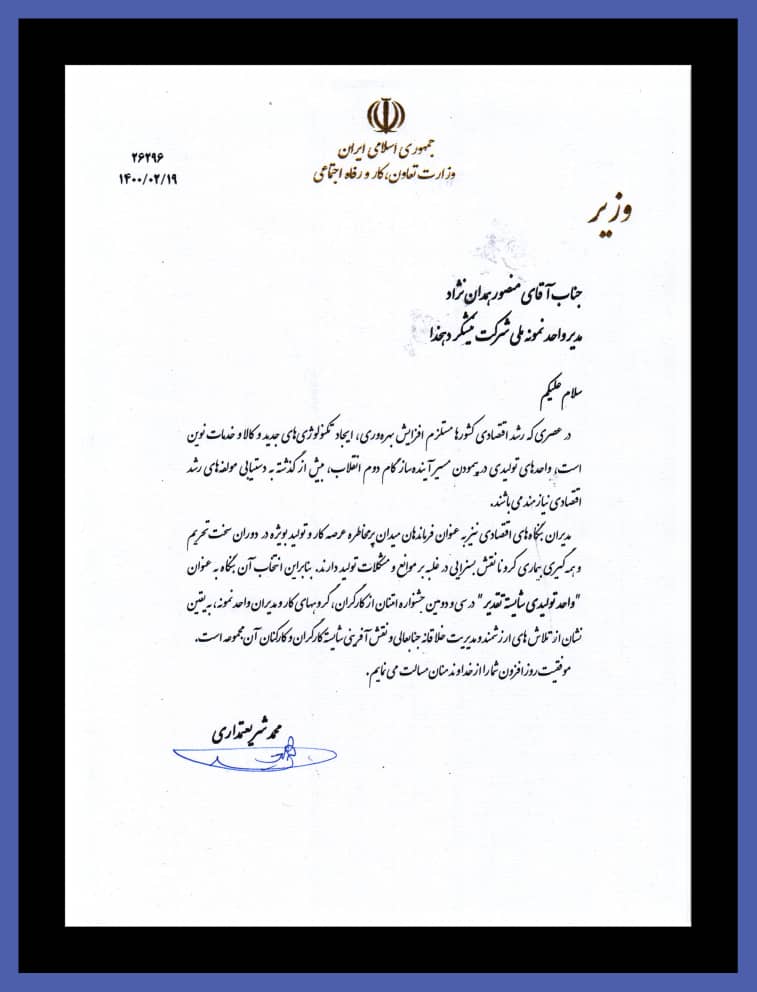 جمهوری اسلامی ایران
وزارت تعاون، کار و رفاه اجتماعی
۲۶۲۹۶
۱۴۰۰/۰۲/۱۹
وزیر
جناب آقای منصور همدان نژاد
مدیر واحد نمونه ملی شرکت نیشکر دهخدا
سلام علیکم
در عصری که رشد اقتصادی کشورها مستلزم افزایش بهره‌وری، ایجاد تکنولوژی‌های جدید و کالا و خدمات نوین
است، واحدهای تولیدی در پیمودن مسیر آینده‌ساز گام دوم انقلاب، بیش از گذشته به دستیابی مولفه‌های رشد
اقتصادی نیازمند می‌باشند.
مدیران بنگاه‌های اقتصادی نیز به عنوان فرماندهان میدان پرمخاطره عرصه کار و تولید بویژه در دوران سخت تحریم
و همه‌گیری بیماری کرونا نقش بسزایی در غلبه بر موانع و مشکلات تولید دارند. بنابراین انتخاب آن بنگاه به عنوان
"واحد تولیدی شایسته تقدیر" در سی و دومین جشنواره امتنان از کارگران، گروههای کار و مدیران واحد نمونه، به یقین
نشان از تلاش های ارزشمند و مدیریت خلاقانه جنابعالی و نقش آفرینی شایسته کارگران و کارکنان آن مجموعه است.
موفقیت روزافزون شما را از خداوند منان مسالت می نمایم.
محمد شریعتمداری